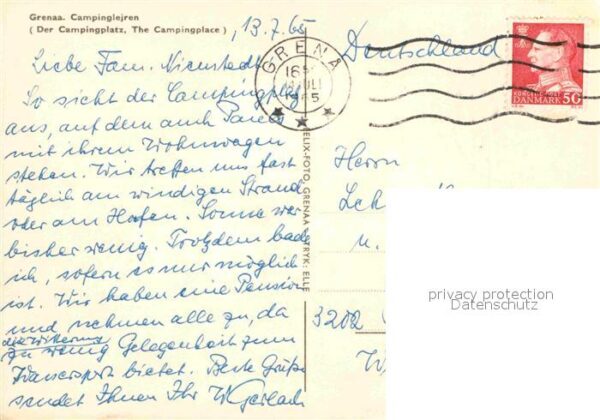 Grenaa. Campinglejren
( Der Campingplatz, The Campingplace )
13.7.65
Liebe Fam. Nienstedt
So sieht der Campingplatz
aus, auf dem auch Pauls
mit ihrem Wohnwagen
stehen. Wir treffen uns fast
täglich am windigen Strand
oder am Hafen. Sonne war
bisher wenig. Trotzdem bade
ich, sofern es nur möglich
ist. Wir haben eine Pension
und nehmen alle zu, da
die Witterung
zu wenig Gelegenheit zum
Wassersport bietet. Beste Grüße
sendet Ihnen Ihr WGerlach
GRENÅ
16
JULI
DANMARK 50
Deutschland
Herrn
u.
3202
privacy protection
Datenschutz